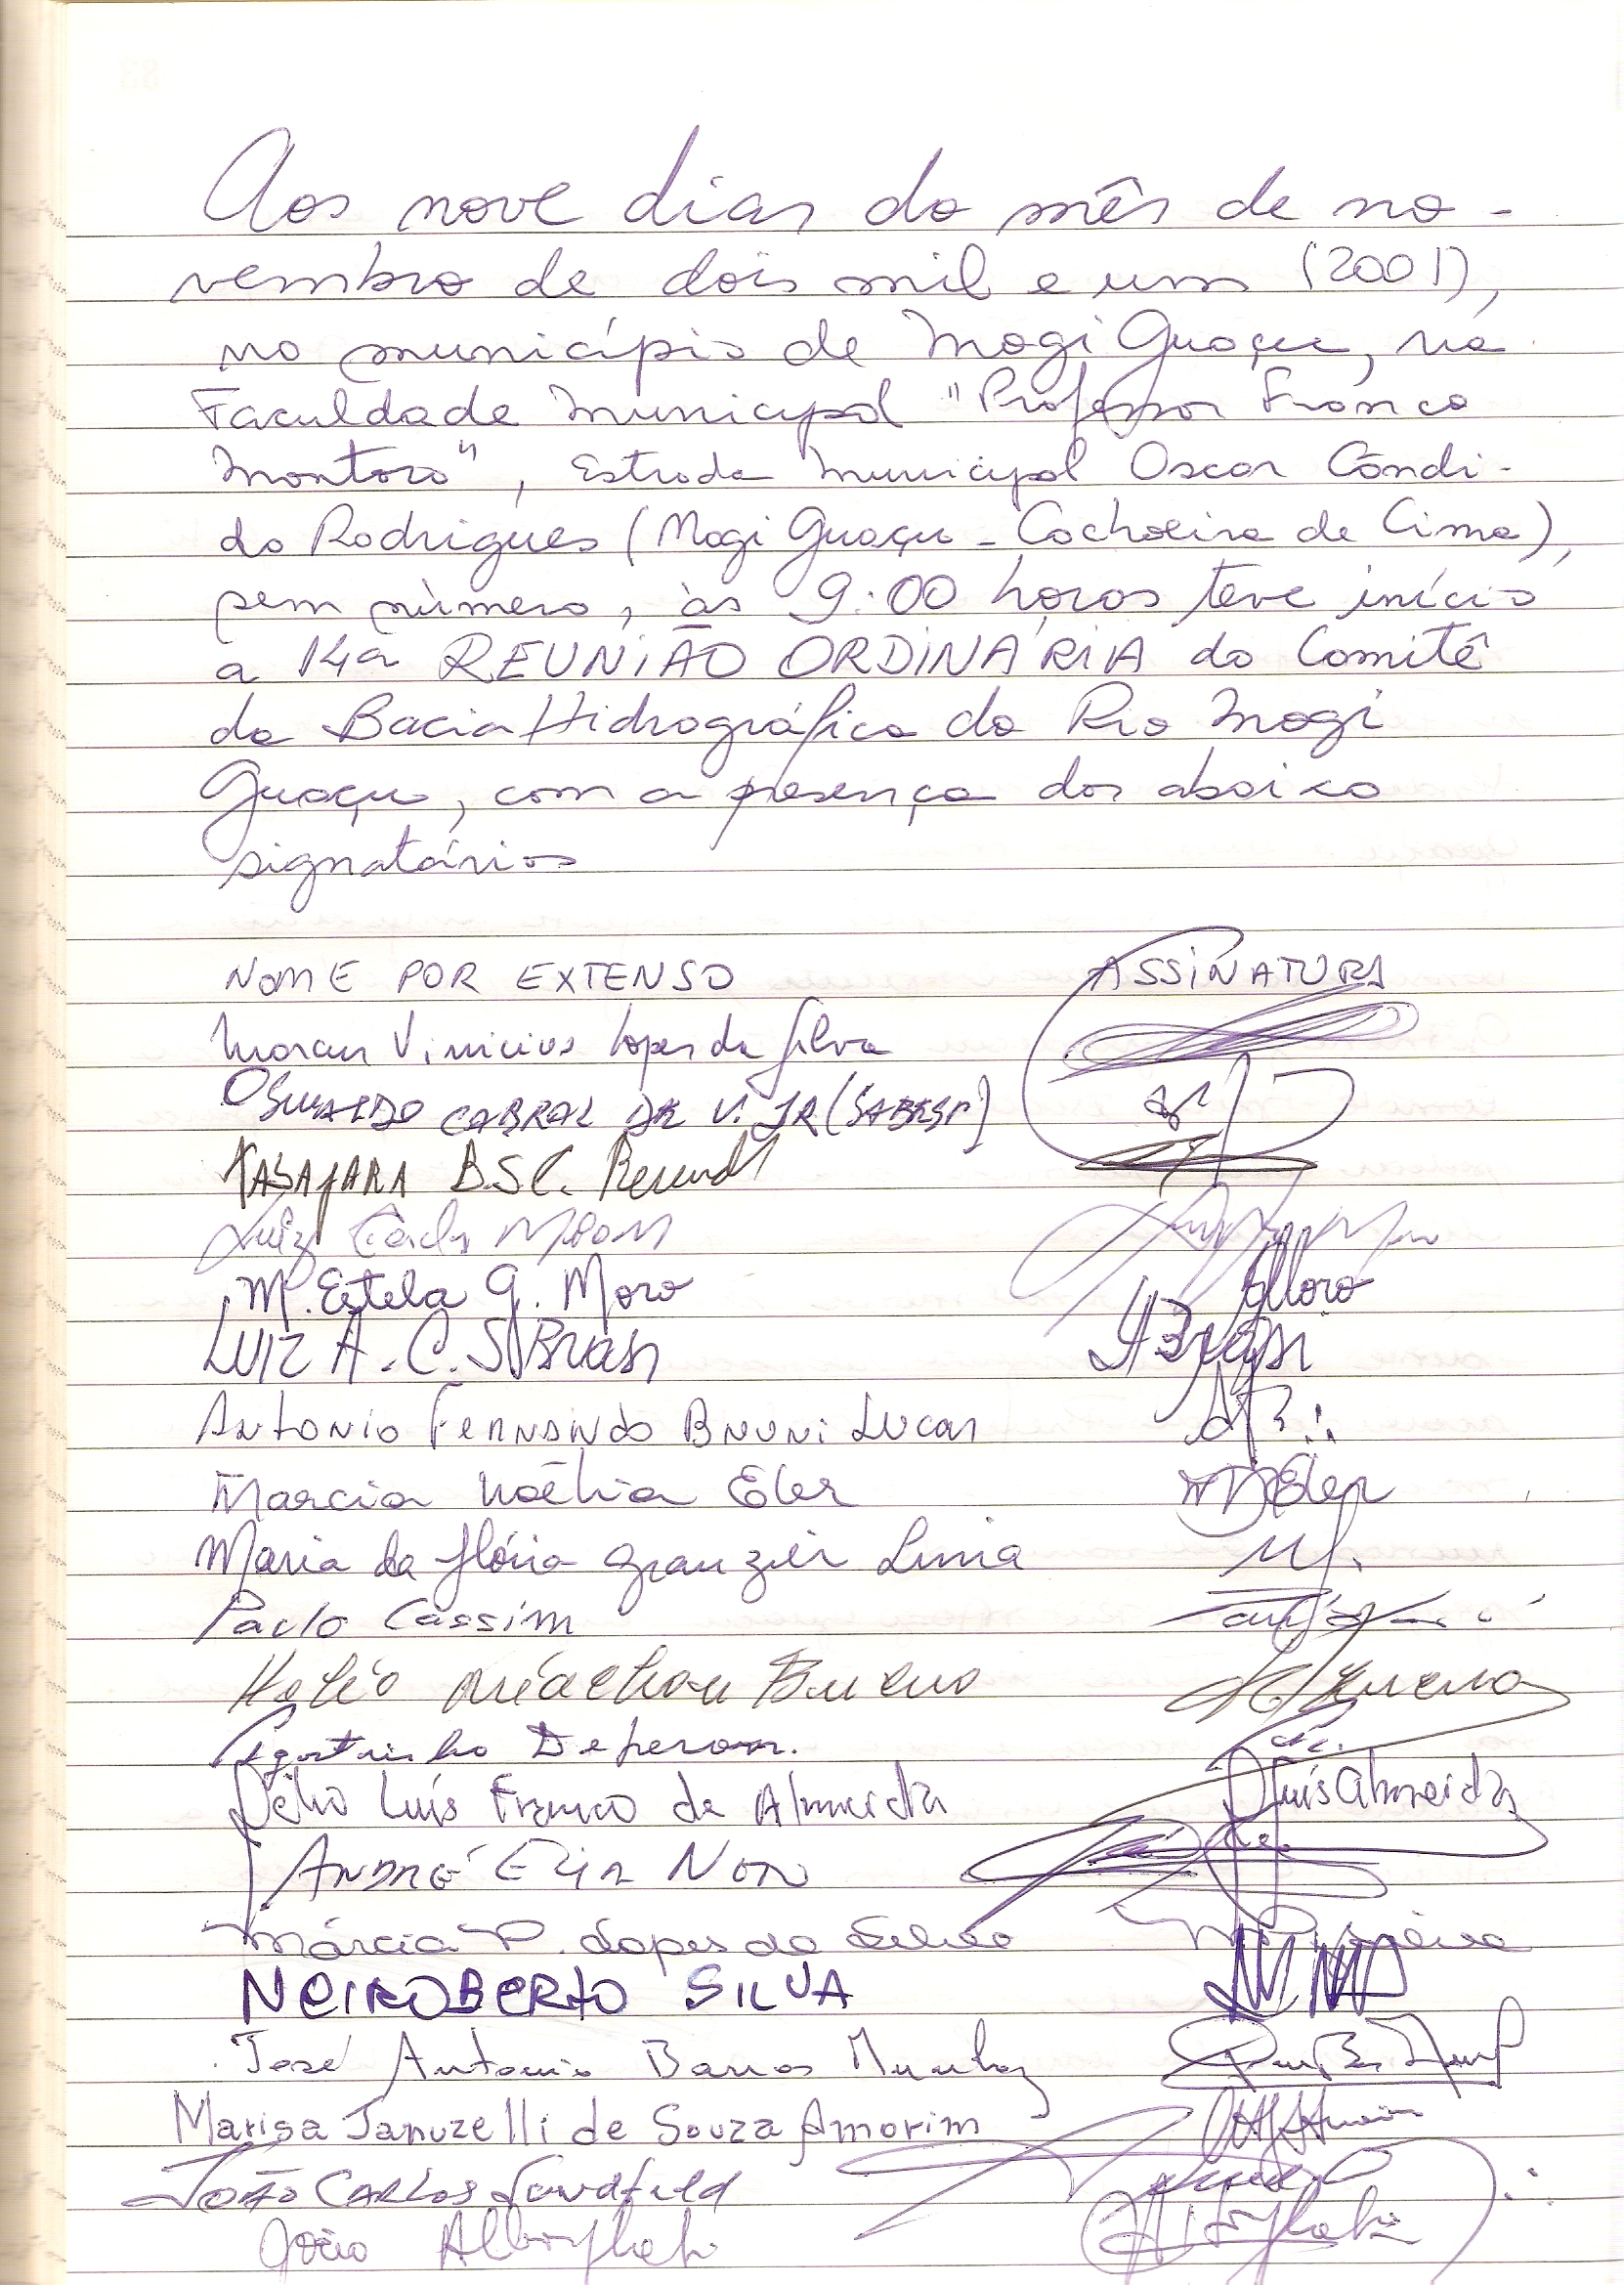 Aos nove dias do mês de no-
vembro de dois mil e um (2001),
no município de Mogi Guaçu, na
Faculdade Municipal "Professor Franco
Montoro", Estrada Municipal Oscar Cândi-
do Rodrigues (Mogi Guaçu - Cachoeira de Cima),
sem número, às 9:00 horas teve início
a 14a REUNIÃO ORDINÁRIA do Comitê
da Bacia Hidrográfica do Rio Mogi
Guaçu, com a presença dos abaixo
signatários
NOME POR EXTENSO ASSINATURA
Vinicius Lopes da Silva
OSWALDO CABRAL DE V. JR (SABESP)
B.S.C.
Luiz Carlos
M. Estela G. Moro Moro
LUIZ A. C. S. BRASI
ANTONIO FERNANDO BRUNI LUCAS
Marcia Noélia Eler Eler
Maria da Glória Granzier Lima
Paulo Cassim
Helio Bueno Bueno
Agostinho Deperon.
Délio Luís Franco de Almeida Luís Almeida
ANDRÉ ELIA
Márcia P. Lopes da Silva
NEIROBERTO SILVA
José Antonio Barros Munhoz
Marisa Januzelli de Souza Amorim
JOÃO CARLOS
João